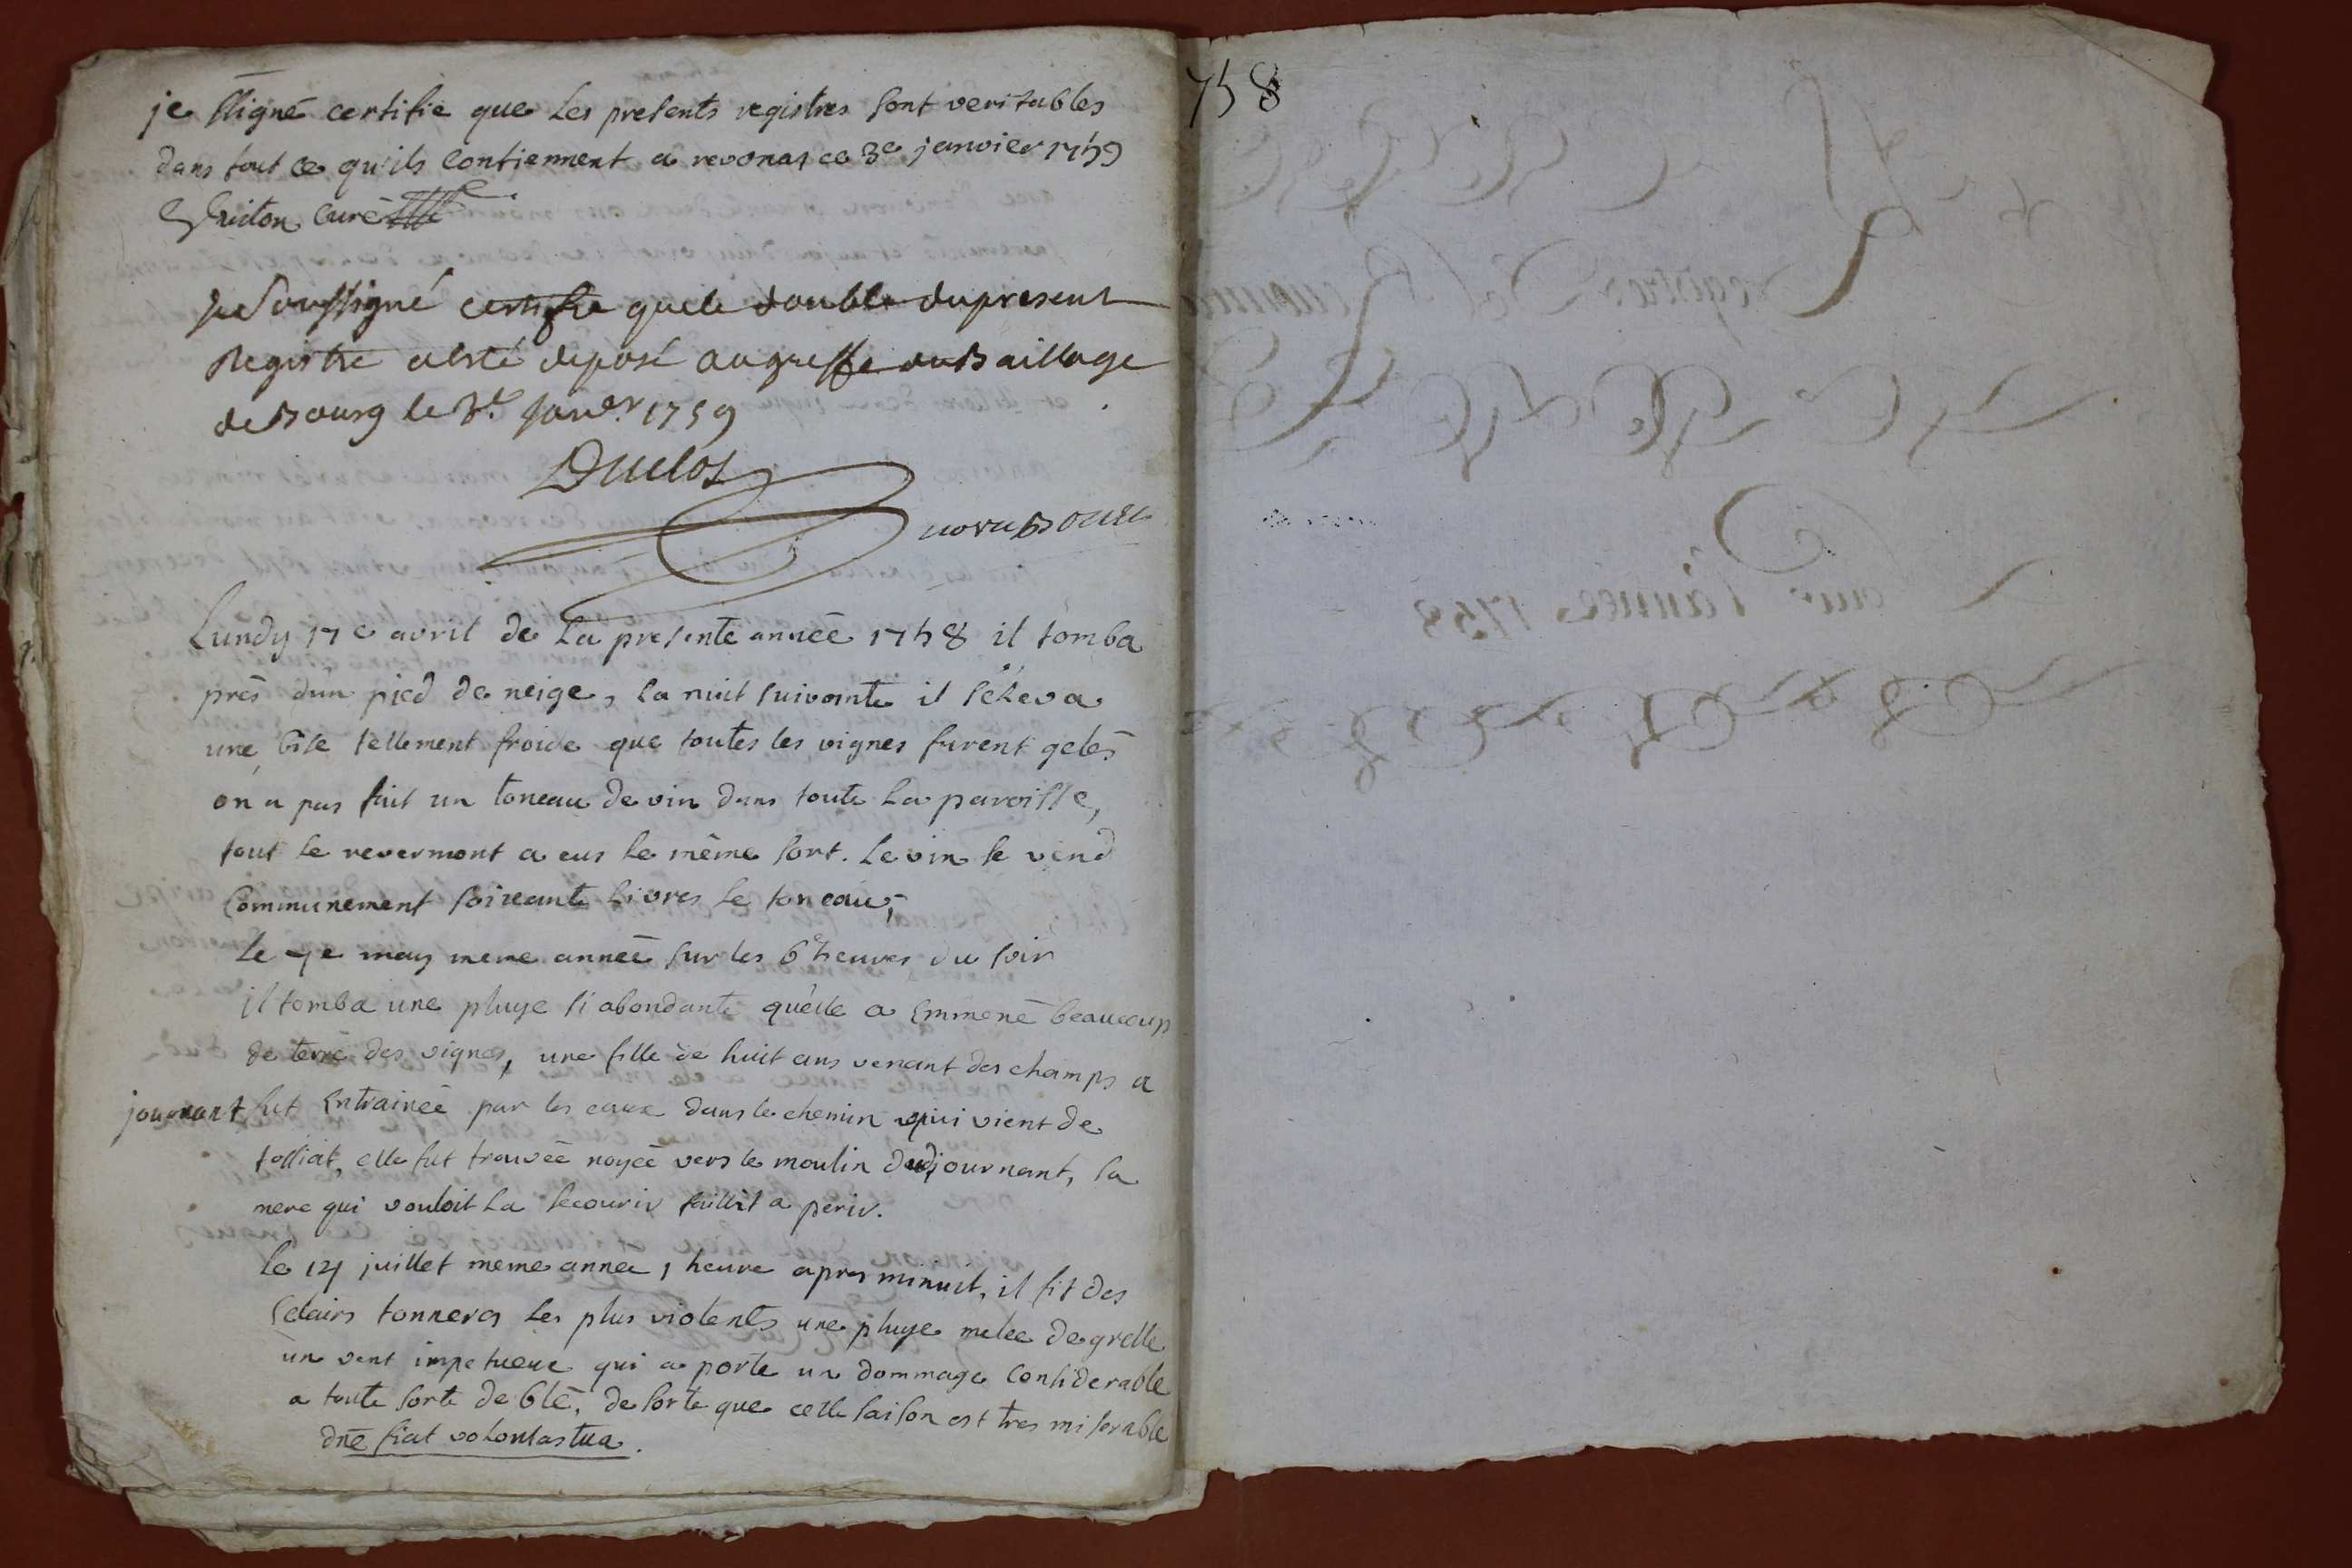 je ssigné certifie que les presents registres sont veritables
dans tout ce qu'ils contiennent a revonas ce 3e janvier 1759
curé
Je soussigné certifie que le double du present
Registre a été deposé au greffe du Baillage
de Bourg le 3e Janer 1759
Duclos
Lundy 17e avril de la presente année 1758 il tomba
près d'un pied de neige, la nuit suivante il s'eleva
une bise tellement froide que toutes les vignes furent gelés
on a pas fait un toneau de vin dans toute la paroisse,
tout le revermont a eus le même sort. le vin se vend
communement soixante livres le toneau;
le 7e may meme année sur les 6 heures du soir
il tomba une pluye si abondante qu'elle a emmené beaucoup
de terre des vignes, une fille de huit ans venant des champs a
journant fut entrainée par les eaux dans le chemin qui vient de
tossiat, elle fut trouvée noyée vers le moulin dudj journant, la
mere qui vouloit la secourir faillit a perir.
le 14 juillet meme année 1 heure apres minuit, il fit des
eclairs tonneres les plus violents une pluye melee de grelle
un vent impetueux qui a porté un dommage considerable
a toute sorte de blé, de sorte que cette saison est tres miserable
dne fiat voluntas tua.
758
registres
pour l'année 1758